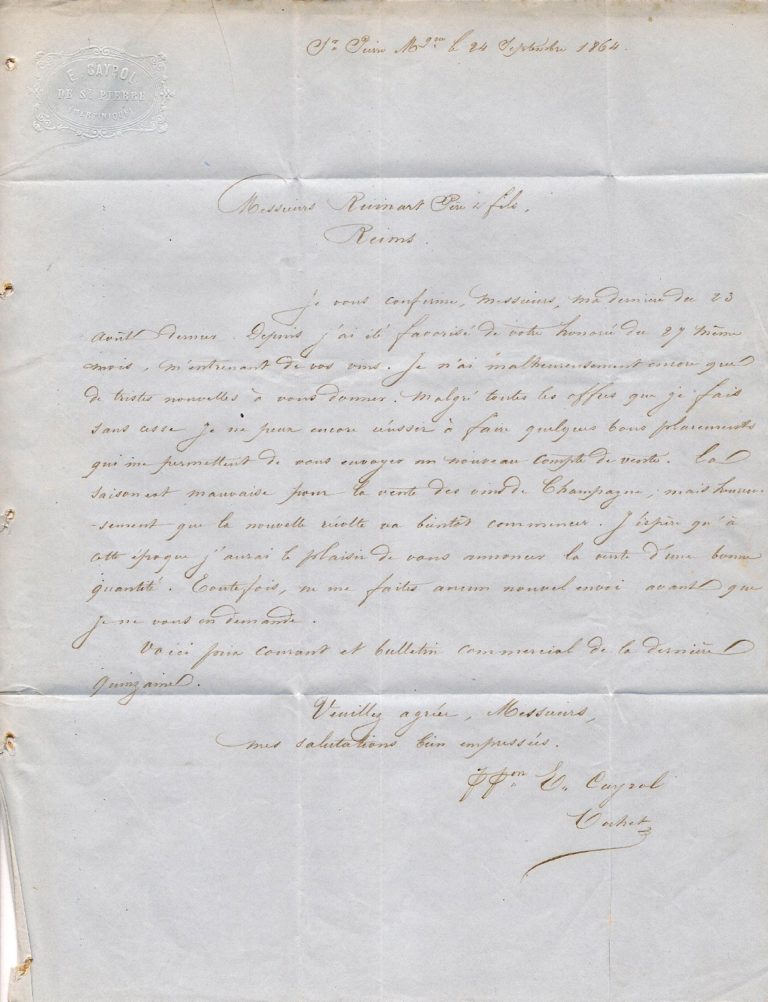 E. CAYROL
DE St. PIERRE
(MARTINIQUE)
St. Pierre Mque le 24 Septembre 1864.
Messieurs Ruinart Père & fils,
Reims.
Je vous confirme, Messieurs, ma dernière du 23
Août dernier. Depuis j'ai été favorisé de votre honorée du 27 même
mois, m'entrenant de vos vins. Je n'ai malheureusement encore que
de tristes nouvelles à vous donner. Malgré toutes les offres que je fais
sans cesse je ne peux encore réussir à faire quelques bons placements
qui me permettent de vous envoyer un nouveau compte de vente. La
saison est mauvaise pour la vente des vins de Champagne, mais heureu-
-sement que la nouvelle récolte va bientôt commencer. J'espère qu'à
cette époque j'aurai le plaisir de vous annoncer la vente d'une bonne
quantité. Toutefois, ne me faites aucun nouvel envoi avant que
je ne vous en demande.
Voici prix courant et bulletin commercial de la dernière
quinzaine.
Veuillez agréer, Messieurs,
mes salutations bien empressées.
ppon E. Cayrol